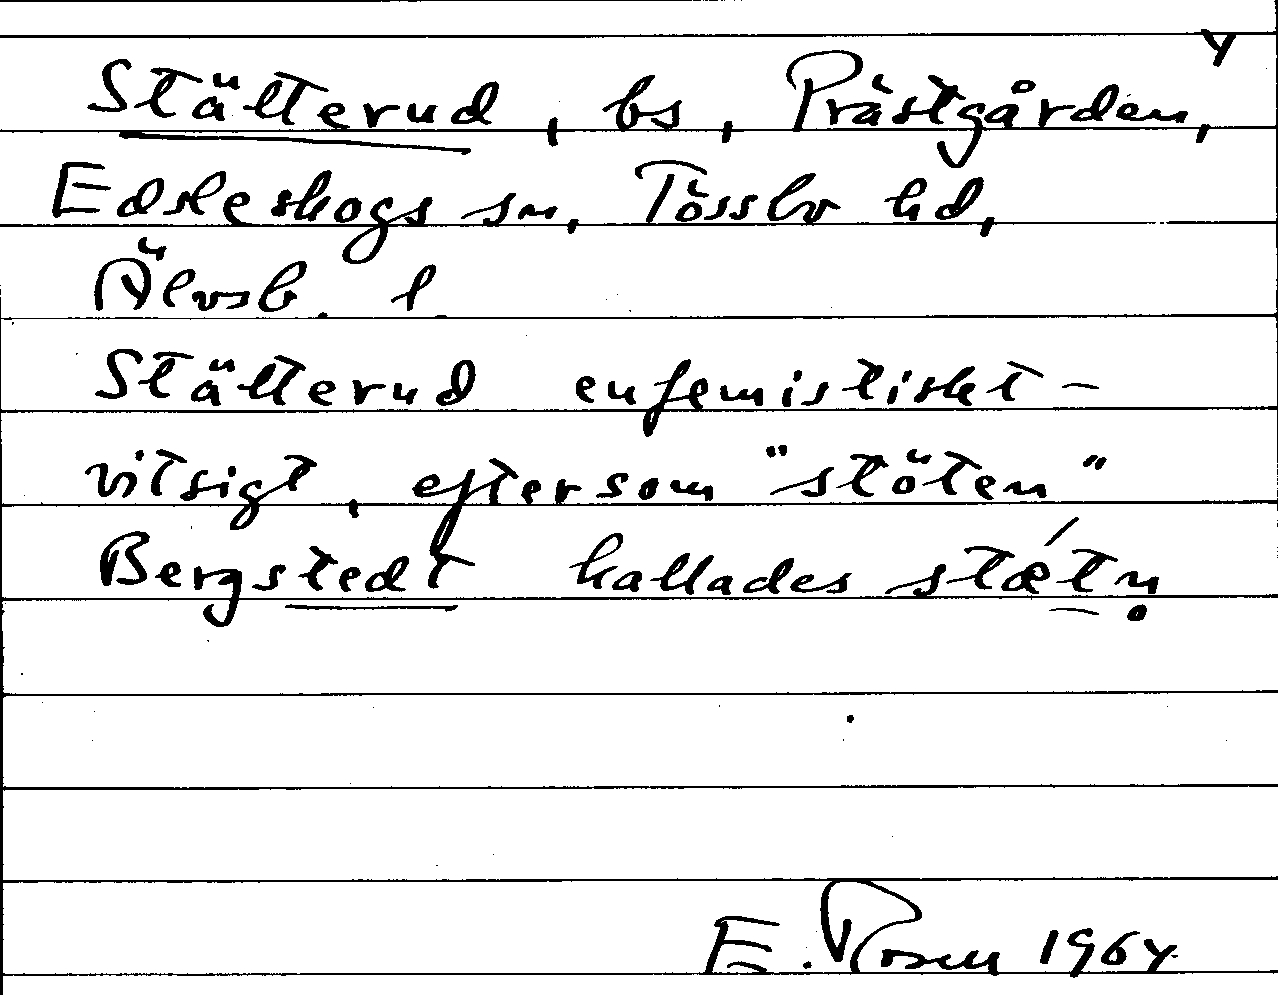 Y
Stätterud, bs, Prästgården,
Edsleskogs sn, Tössbo hd,
Älvsb. l
Stätterud eufemistiskt –
vitsigt, eftersom "stöten"
Bergstedt kallades stǽtn̥
E. Rosen 1964